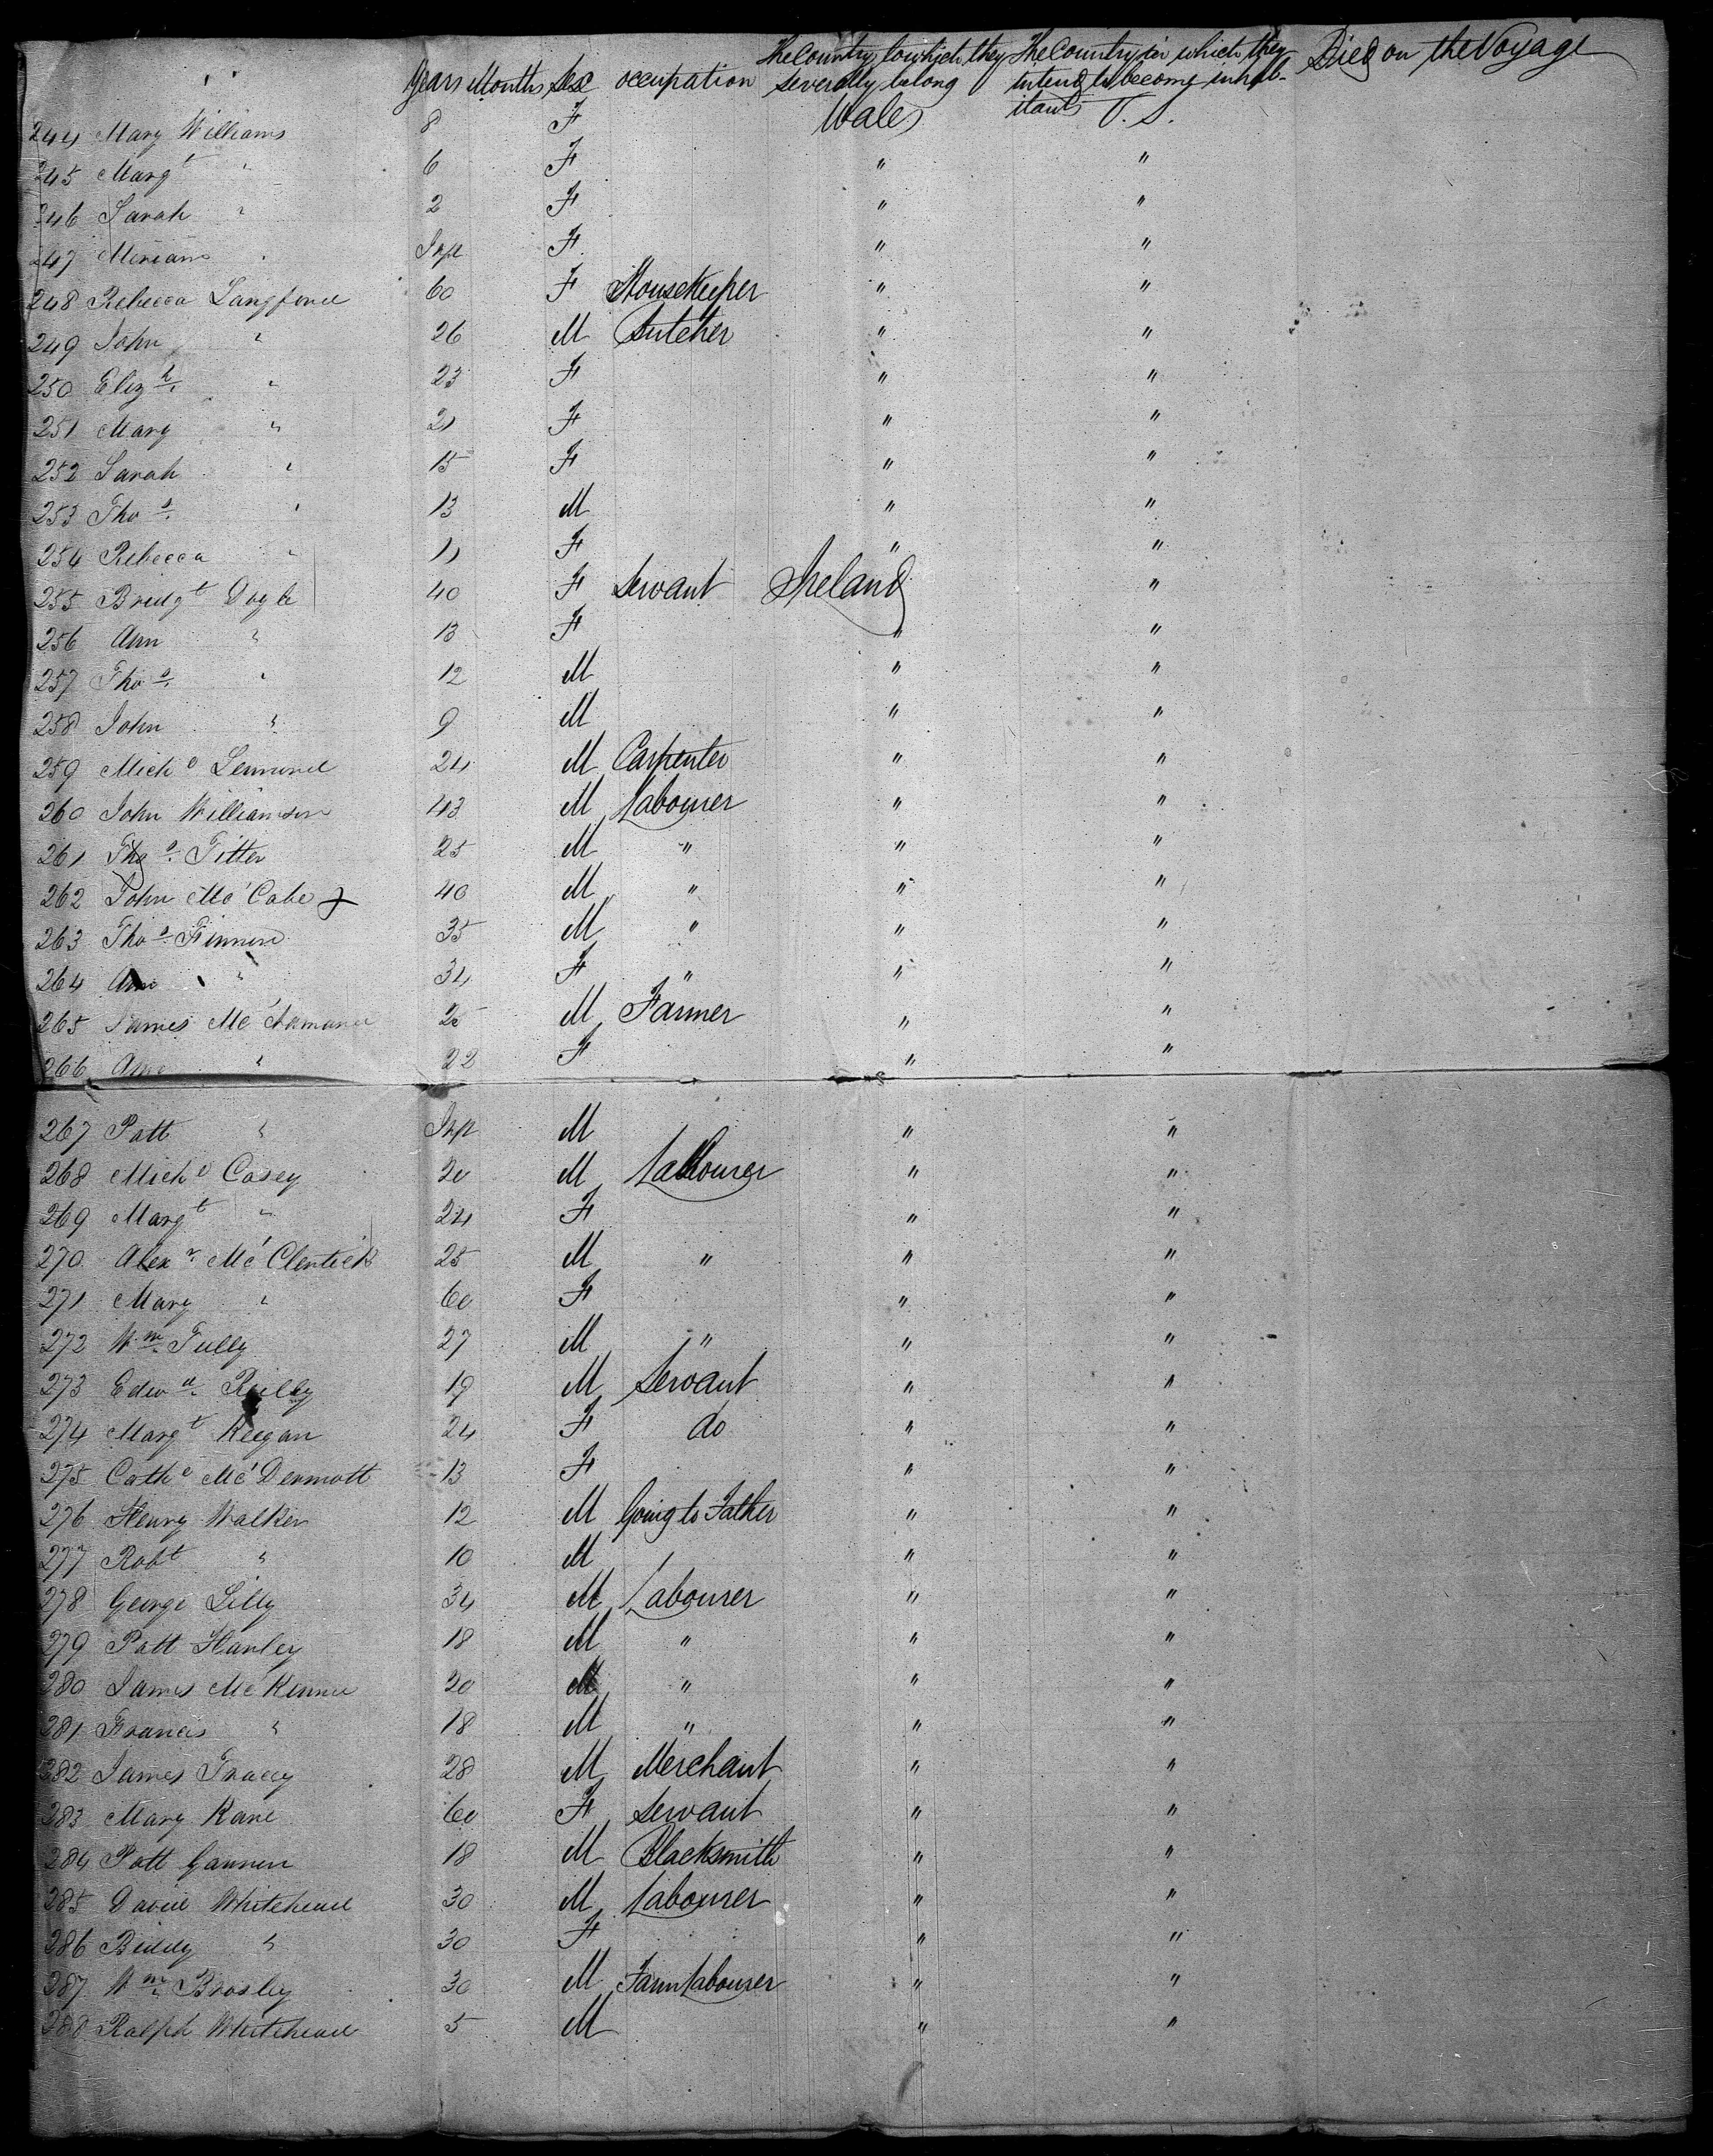 Years Months Sex occupation The Country to which they severally belong The Country in which they intend to become inhabitants Died on the Voyage
244 Mary Williams 8 F Wales U.S.
245 Margt " 6 F " "
246 Sarah " 2 F " "
247 Miriam " Inft F " "
248 Rebecca Langford 60 F Housekeeper " "
249 John " 26 M Butcher " "
250 Elizh " 23 F " "
251 Mary " 21 F " "
252 Sarah " 15 F " "
253 Thos " 13 M " "
254 Rebecca " 11 F " "
255 Bridgt Doyle 40 F Servant Ireland "
256 Ann " 13 F " "
257 Thos " 12 M " "
258 John " 9 M " "
259 Michl 24 M Carpenter " "
260 John Williamson 43 M Labourer " "
261 Thos Fitter 25 M " " "
262 John Mc'Cabe 40 M " " "
263 Thos 35 M " " "
264 Ann " 34 F " " "
265 James M Farmer " "
266 Ann " 22 F " "
267 Patt " Inft M " "
268 Michl Casey 20 M Labourer " "
269 Margt " 24 F " "
270 Alexr Mc'Clentick 25 M " " "
271 Mary " 60 F " "
272 Wm Tully 27 M " " "
273 Edwd Reilly 19 M Servant " "
274 Margt Keegan 24 F do " "
275 Cathe Mc'Dermott 13 F " "
276 Henry Walker 12 M Going to Father " "
277 Robt " 10 M " "
278 George Lilly 34 M Labourer " "
279 Patt Hanley 18 M " " "
280 James McKenna 20 M " " "
281 Francis " 18 M " " "
282 James Tracey 28 M Merchant " "
283 Mary Kane 60 F Servant " "
284 Patt Gannon 18 M Blacksmith " "
285 David Whitehead 30 M Labourer " "
286 Biddy " 30 F " "
287 Wm Brosley 30 M Farm Labourer " "
288 Ralph Whitehead 5 M " "